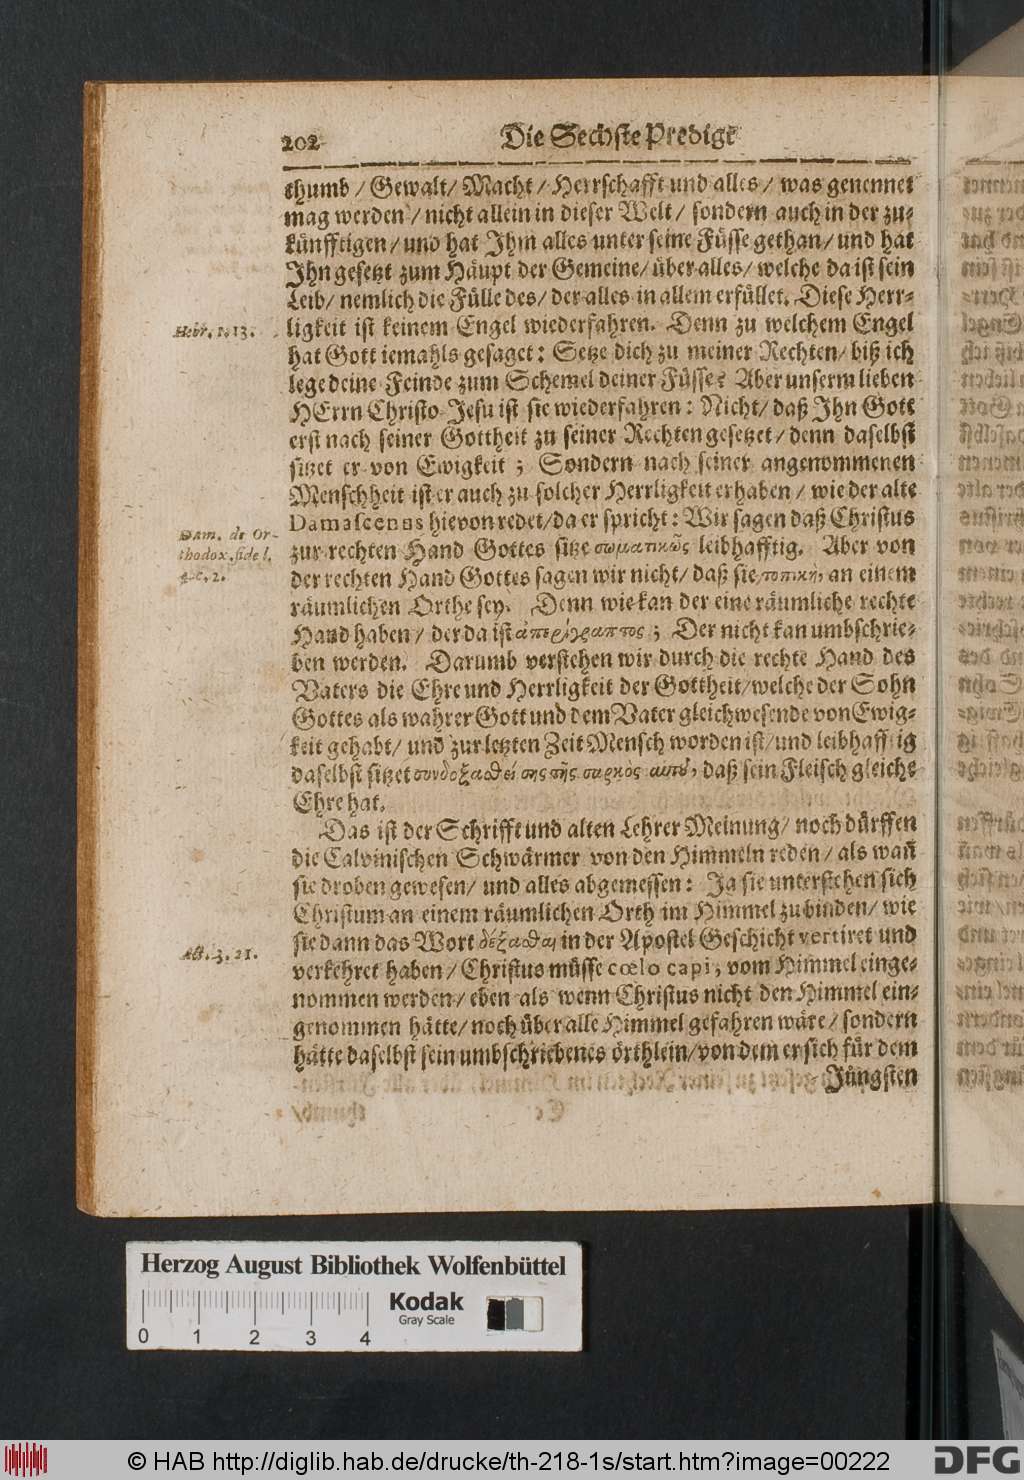 202 Die Sechste Predigt
thumb / Gewalt / Macht / Herrschafft und alles / was genennet
mag werden / nicht allein in dieser Welt / sondern auch in der zu-
künfftigen / und hat Ihm alles unter seine Füsse gethan / und hat
Ihn gesetzt zum Häupt der Gemeine / über alles / welche da ist sein
Leib / nemlich die Fülle des / der alles in allem erfüllet. Diese Herr-
Hebr. 1. 13.
ligkeit ist keinem Engel wiederfahren. Denn zu welchem Engel
hat Gott iemahls gesaget: Setze dich zu meiner Rechten / biß ich
lege deine Feinde zum Schemel deiner Füsse? Aber unserm lieben
HErrn Christo Jesu ist sie wiederfahren: Nicht / daß Ihn Gott
erst nach seiner Gottheit zu seiner Rechten gesetzet / denn daselbst
sitzet er von Ewigkeit; Sondern nach seiner angenommenen
Menschheit ist er auch zu solcher Herrligkeit erhaben / wie der alte
Dam. de Or-
thodox. fide l.
4. c. 2.
Damascenus hievon redet / da er spricht: Wir sagen daß Christus
zur rechten Hand Gottes sitze σωματικῶς leibhafftig. Aber von
der rechten Hand Gottes sagen wir nicht / daß sie τοπικὴ, an einem
räumlichen Orthe sey. Denn wie kan der eine räumliche rechte
Hand haben / der da ist ἀπερίγραπτος; Der nicht kan umbschrie-
ben werden. Darumb verstehen wir durch die rechte Hand des
Vaters die Ehre und Herrligkeit der Gottheit / welche der Sohn
Gottes als wahrer Gott und dem Vater gleichwesende von Ewig-
keit gehabt / und zur letzten Zeit Mensch worden ist / und leibhafftig
daselbst sitzet συνδοξαθείσης τῆς σαρκὸς αυτοῦ, daß sein Fleisch gleiche
Ehre hat.
Das ist der Schrifft und alten Lehrer Meinung / noch dürffen
die Calvinischen Schwärmer von den Himmeln reden / als wañ
sie droben gewesen / und alles abgemessen: Ja sie unterstehen sich
Christum an einem räumlichen Orth im Himmel zu binden / wie
Act. 3. 21.
sie dann das Wort δέξαθαι in der Apostel Geschicht vertiret und
verkehret haben / Christus müsse cœlo capi, vom Himmel einge-
nommen werden / eben als wenn Christus nicht den Himmel ein-
genommen hätte / noch über alle Himmel gefahren wäre / sondern
hätte daselbst sein umbschriebenes örthlein / von dem er sich für dem
Jüngsten
Herzog August Bibliothek Wolfenbüttel
0 1 2 3 4
Kodak
Gray Scale
© HAB http://diglib.hab.de/drucke/th-218-1s/start.htm?image=00222
DFG